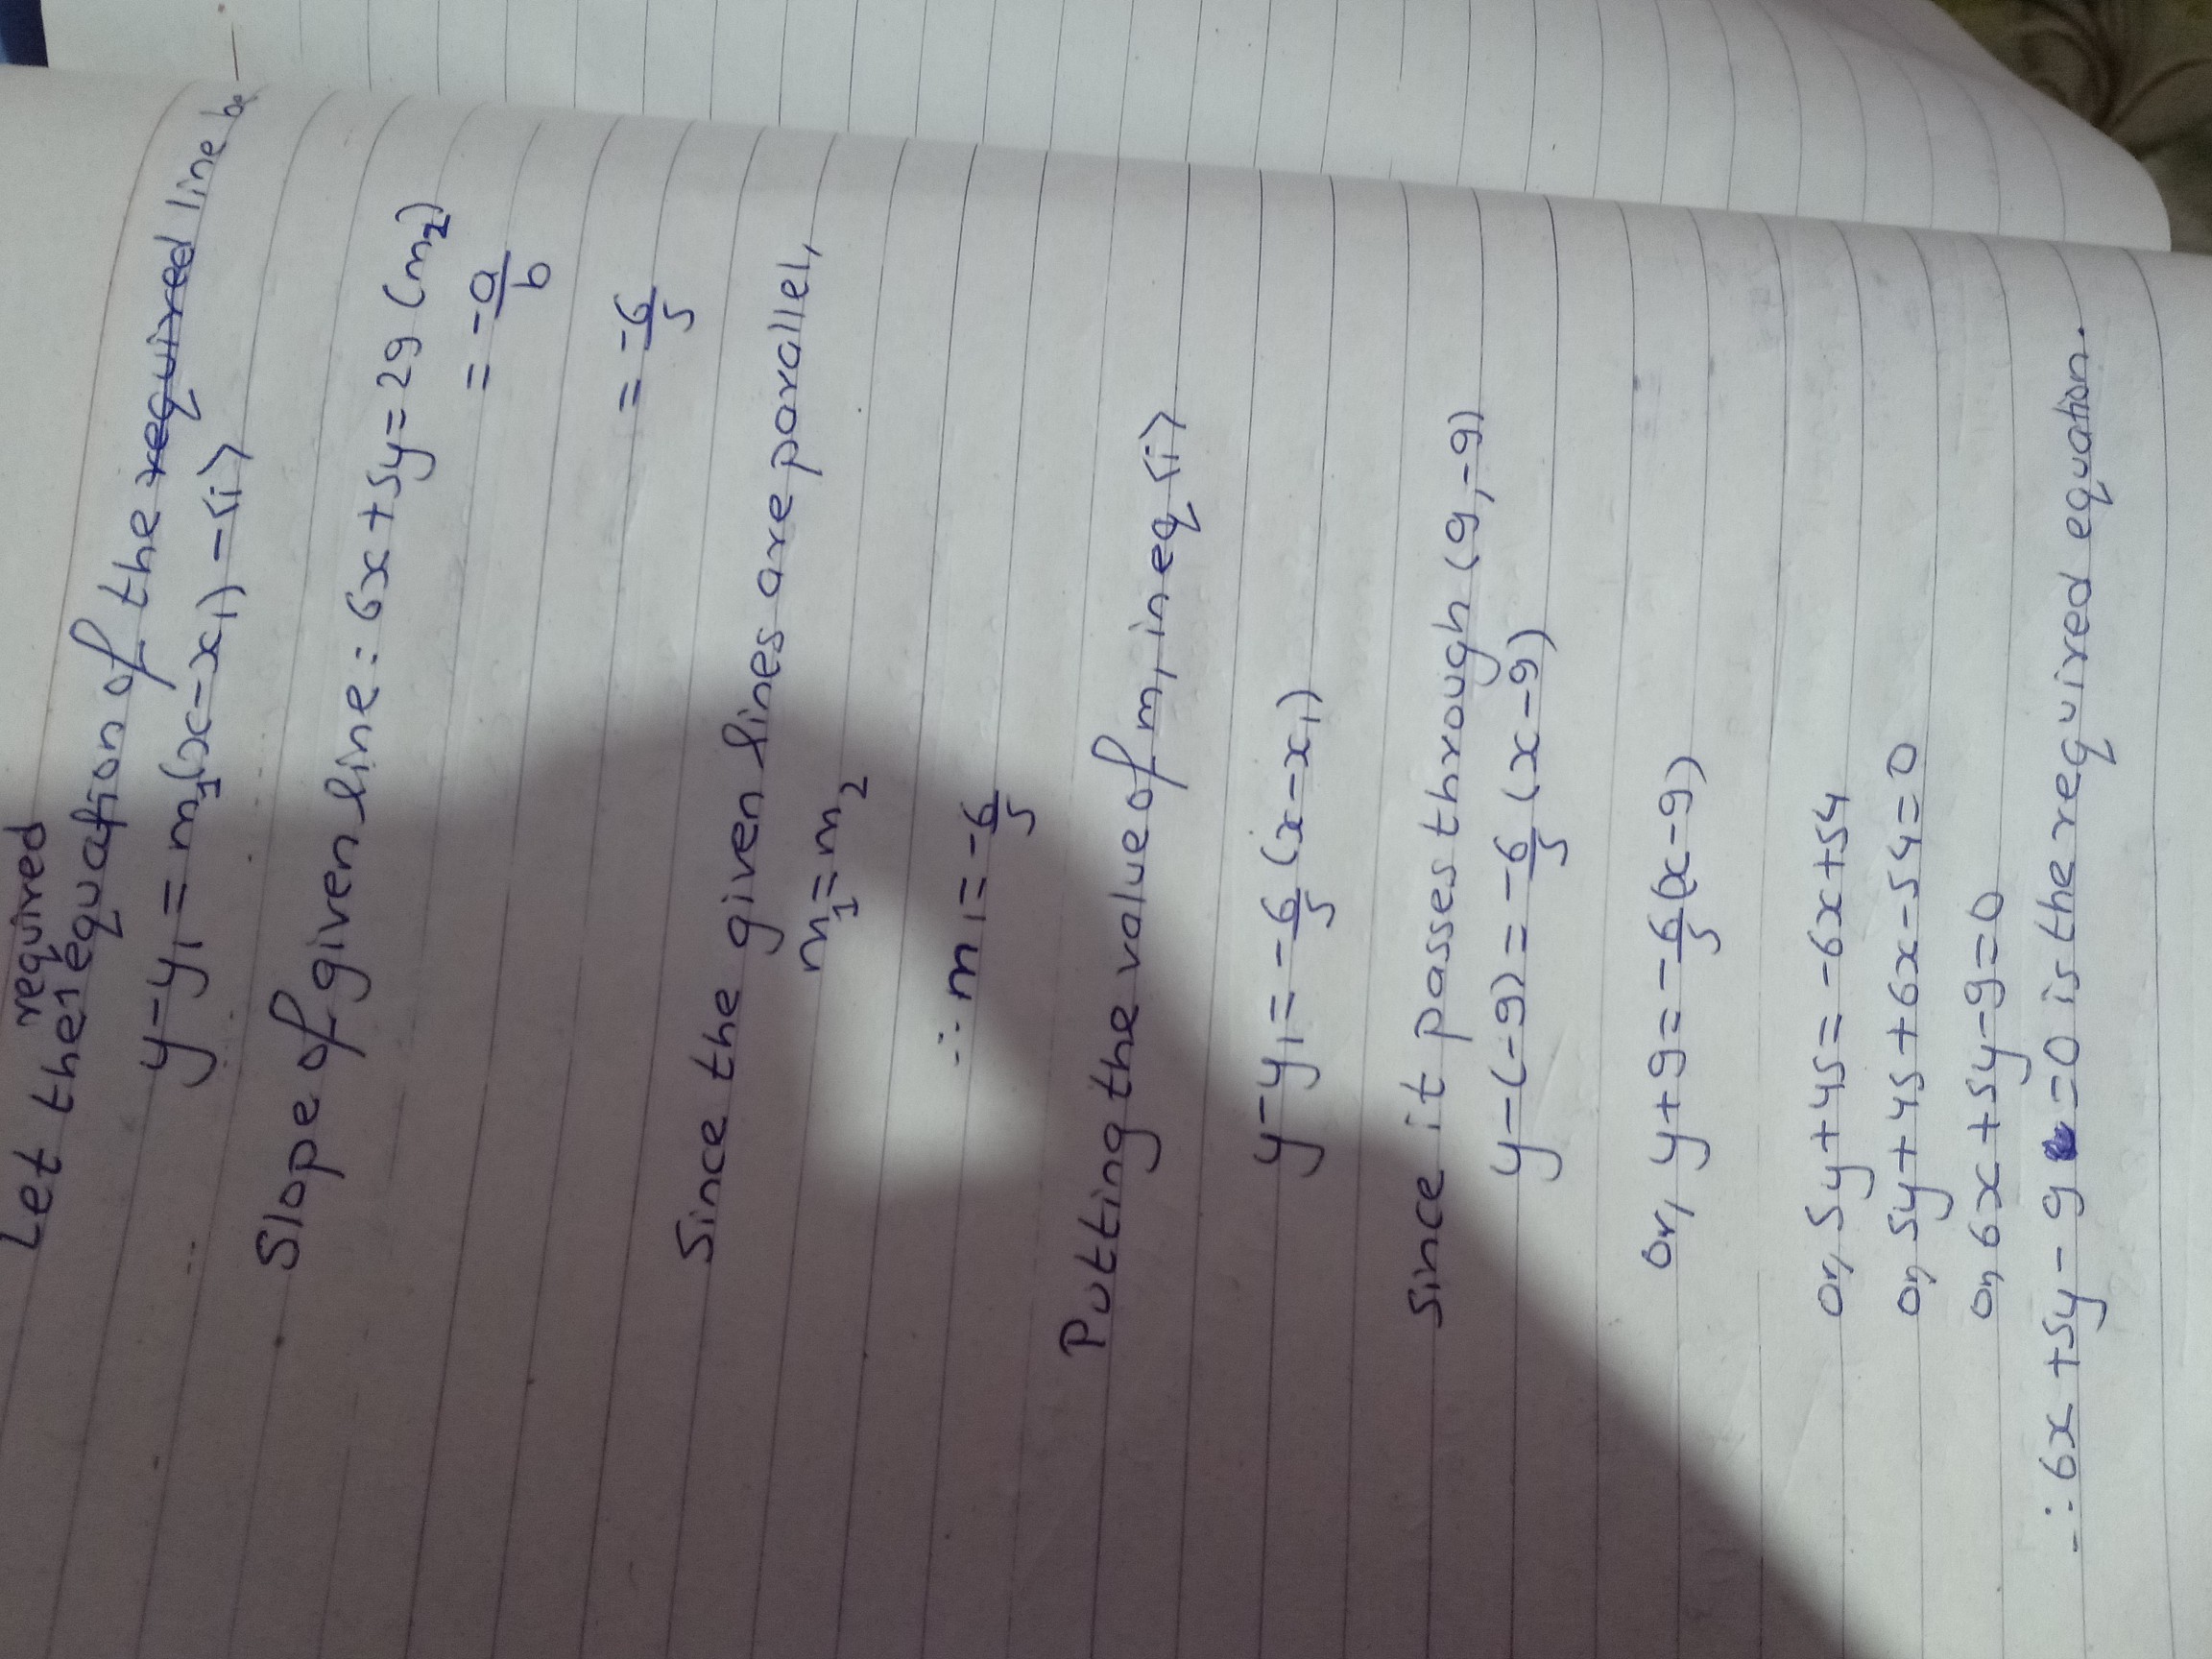 required
Let the equation of the required line be
y-y₁ = m₁(x-x₁) -<i>
Slope of given line: 6x+5y=29 (m₂)
= -a/b
= -6/5
Since the given lines are parallel,
m₁=m₂
∴ m₁ = -6/5
Putting the value of m₁ in eq <i>
y-y₁ = -6/5 (x-x₁)
Since it passes through (9,-9)
y-(-9) = -6/5 (x-9)
or, y+9 = -6/5 (x-9)
or, 5y+45 = -6x+54
or, 5y+45+6x-54=0
or, 6x+5y-9=0
∴ 6x+5y-9=0 is the required equation.